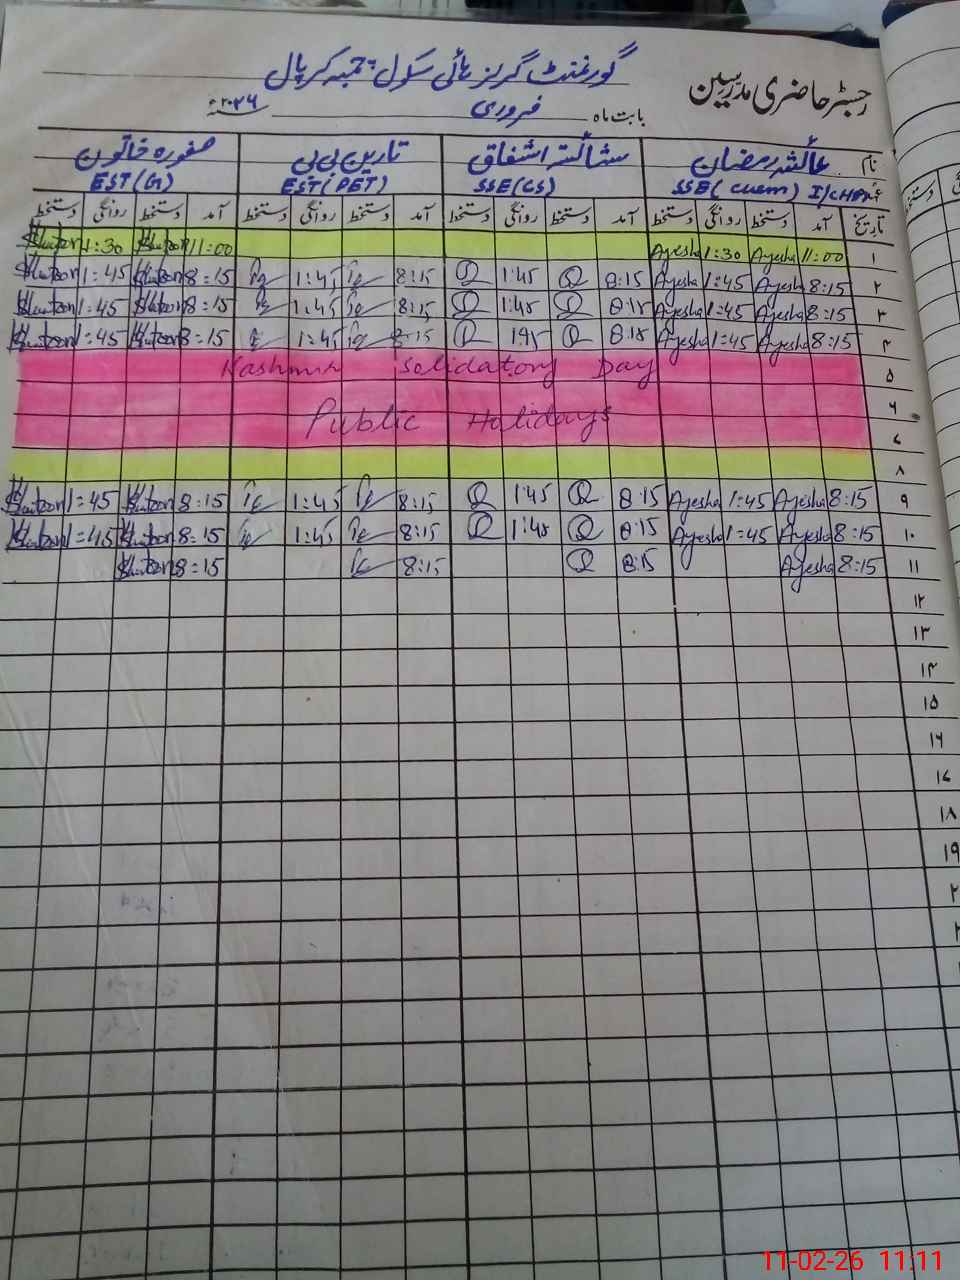 گورنمنٹ گرلز ہائی سکول
رجسٹر حاضری مدرسین
بابت ماہ فروری ۲۰۲۶ء
نام عائشہ رمضان شائستہ اشفاق نازین بی بی صفورہ خاتون
SSE (Chem) I/C HM SSE (CS) EST (PET) EST (G)
تاریخ آمد دستخط روانگی دستخط آمد دستخط روانگی دستخط آمد دستخط روانگی دستخط آمد دستخط روانگی دستخط
۱ 11:00 Ayesha 1:30 Ayesha 11:00 Khatoon 1:30 Khatoon
۲ 8:15 Ayesha 1:45 Ayesha 8:15 1:45 8:15 1:45 8:15 Khatoon 1:45 Khatoon
۳ 8:15 Ayesha 1:45 Ayesha 8:15 1:45 8:15 1:45 8:15 Khatoon 1:45 Khatoon
۴ 8:15 Ayesha 1:45 Ayesha 8:15 1:45 8:15 1:45 8:15 Khatoon 1:45 Khatoon
۵ Kashmir Solidatory Day
۶ Public Holidays
۷
۸
۹ 8:15 Ayesha 1:45 Ayesha 8:15 1:45 8:15 1:45 8:15 Khatoon 1:45 Khatoon
۱۰ 8:15 Ayesha 1:45 Ayesha 8:15 1:45 8:15 1:45 8:15 Khatoon 1:45 Khatoon
۱۱ 8:15 Ayesha 8:15 8:15 8:15 Khatoon
۱۲
۱۳
۱۴
۱۵
۱۶
۱۷
۱۸
۱۹
11-02-26 11:11